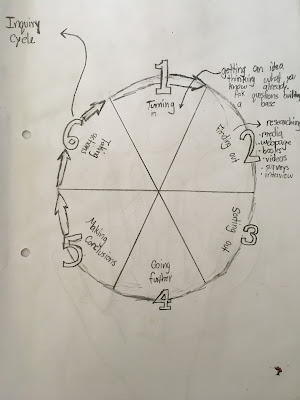 Inquiry
Cycle
1
Tuning
in
getting an idea
thinking what you
know already.
Ask questions building
a base
2
Finding out
researching
• media
• webpage
• books
• videos
• surveys
• interview
3
Sorting
out
4
Going
further
5
Making
Conclusions
6
Taking
action